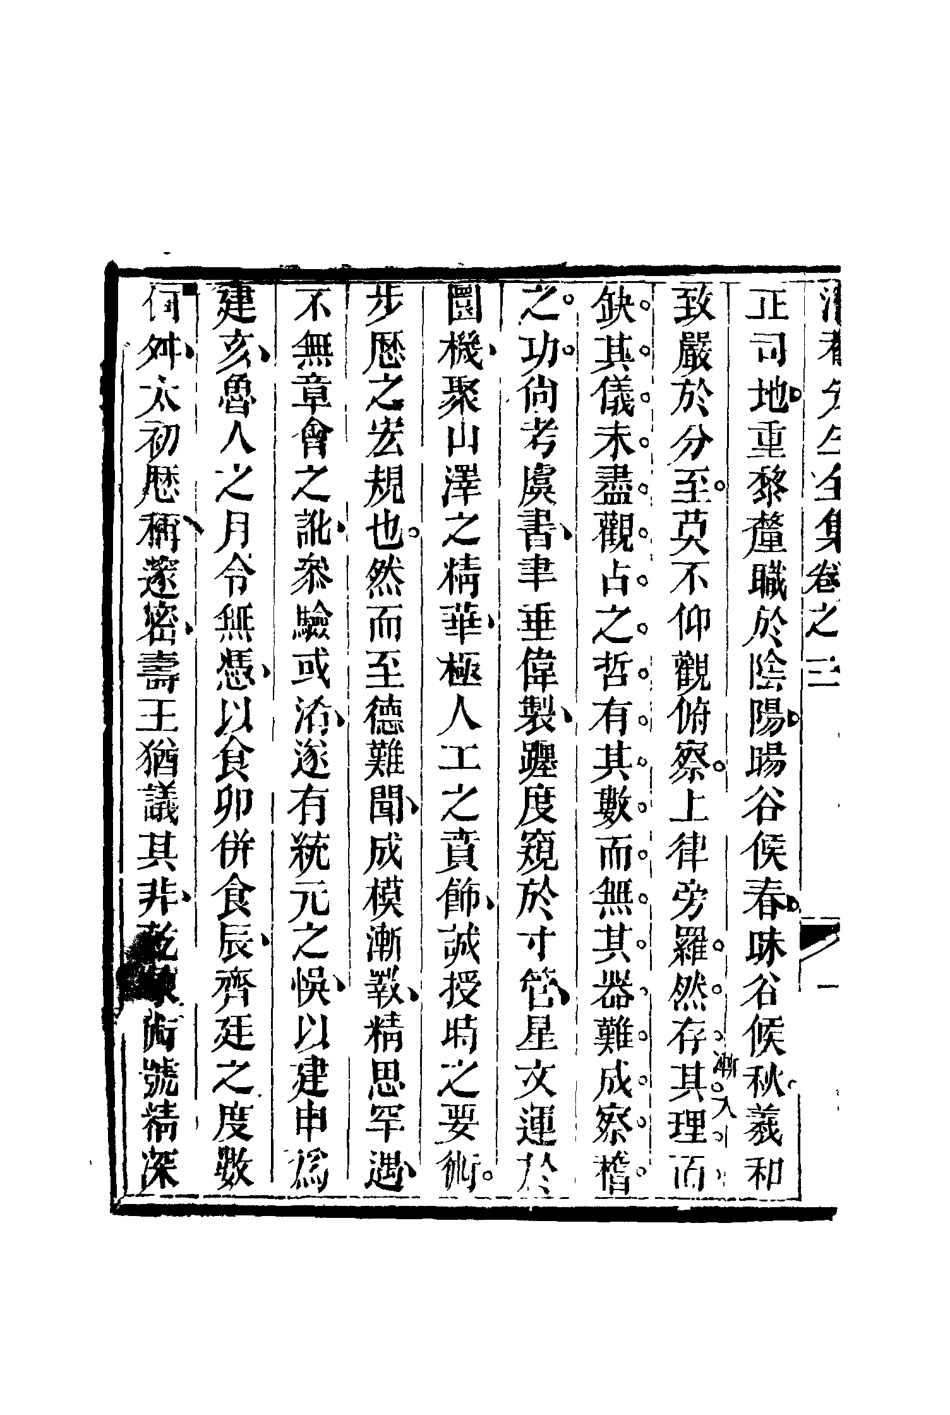 全集卷之三
一
正司地重黎釐職於陰陽暘谷候春昧谷候秋羲和
致嚴於分至莫不仰觀俯察上律旁羅然存其理而
漸入
缺其儀未盡觀占之哲有其數而無其器難成察稽
之功尚考虞書聿垂偉製躔度窺於寸管星文運於
圜機聚山澤之精華極人工之賁飾誠授時之要術
步歷之宏規也然而至德難聞成模漸斁精思罕遇
不無章會之訛叅驗或淆遂有統元之悞以建申爲
建亥魯人之月令無憑以食卯併食辰齊廷之度數
何舛太初歷稱邃密壽王猶議其非乾象術號精深